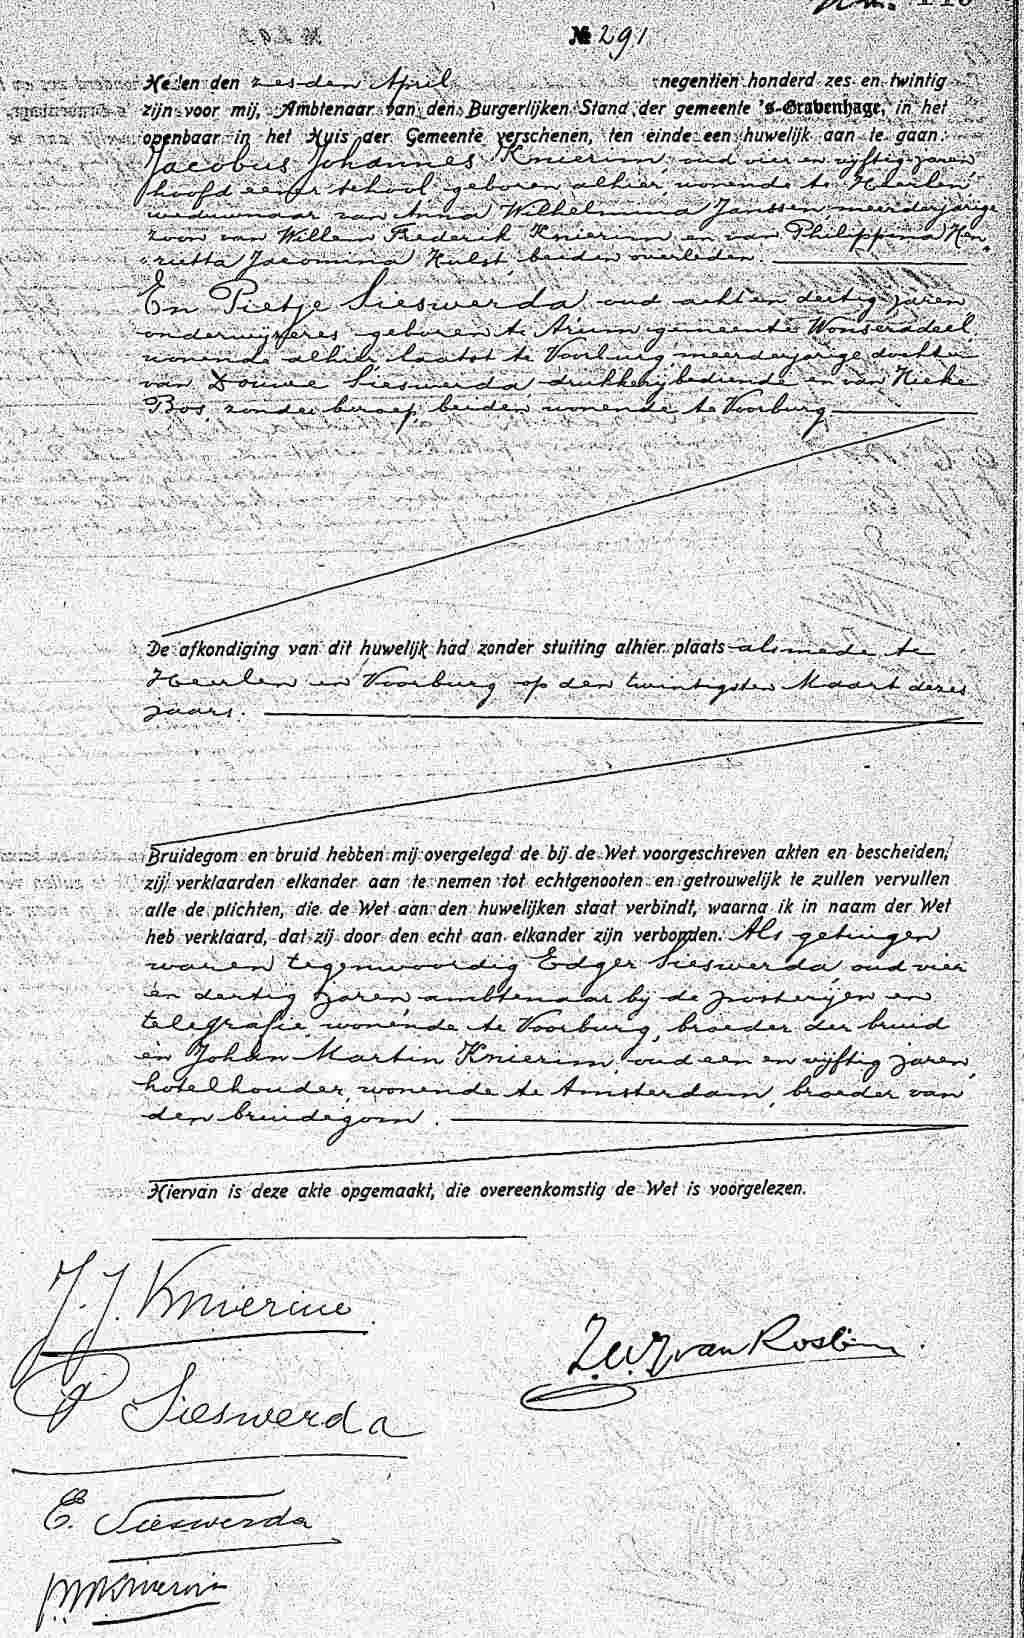 № 291
Heden den zesden April negentien honderd zes en twintig
zijn voor mij, Ambtenaar van den Burgerlijken Stand der gemeente 's-Gravenhage, in het
openbaar in het Huis der Gemeente verschenen, ten einde een huwelijk aan te gaan:
Jacobus Johannes Knierim, oud vier en vijftig jaren,
hoofd eener school, geboren alhier, wonende te Heerlen,
weduwnaar van Anna Wilhelmina Janssen, meerderjarige
zoon van Willem Frederik Knierim en van Philippina Hen-
rietta Jacomina Hulst, beiden overleden.
En Pietje Sieswerda, oud acht en dertig jaren,
onderwijzeres, geboren te Arum, gemeente Wonseradeel,
wonende alhier, laatst te Voorburg, meerderjarige dochter
van Douwe Sieswerda, drukkerijbediende, en van Hieke
Bos, zonder beroep, beiden wonende te Voorburg
De afkondiging van dit huwelijk had zonder stuiting alhier plaats alsmede te
Heerlen en Voorburg op den twintigsten Maart dezes
jaars.
Bruidegom en bruid hebben mij overgelegd de bij de Wet voorgeschreven akten en bescheiden;
zij verklaarden elkander aan te nemen tot echtgenooten en getrouwelijk te zullen vervullen
alle de plichten, die de Wet aan den huwelijken staat verbindt, waarna ik in naam der Wet
heb verklaard, dat zij door den echt aan elkander zijn verbonden. Als getuigen
waren tegenwoordig Edger Sieswerda, oud vier
en dertig jaren, ambtenaar bij de posterijen en
telegrafie, wonende te Voorburg, broeder der bruid
en Johan Martin Knierim, oud een en vijftig jaren,
hotelhouder, wonende te Amsterdam, broeder van
den bruidegom.
Hiervan is deze akte opgemaakt, die overeenkomstig de Wet is voorgelezen.
J. J. Knierim
van
P Sieswerda
E. Sieswerda
Knierim